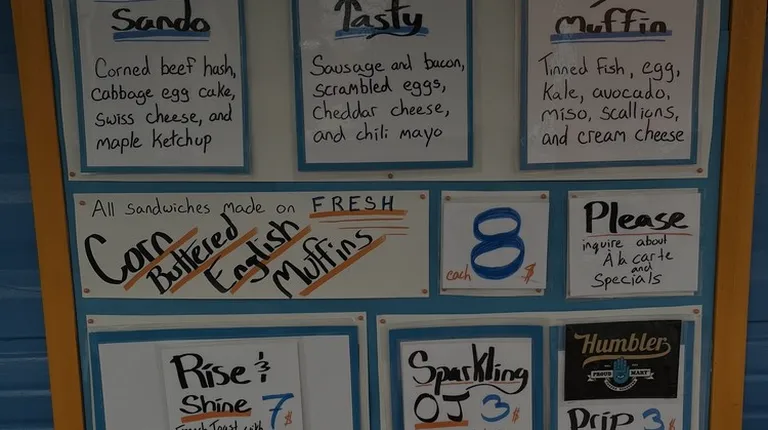 Sando
Corned beef hash,
cabbage egg cake,
swiss cheese, and
maple ketchup
Tasty
Sausage and bacon,
scrambled eggs,
Cheddar cheese,
and chili mayo
Muffin
Tinned fish, egg,
Kale, avocado,
miso, scallions,
and cream cheese
All Sandwiches made on FRESH
Corn
Buttered
English
Muffins
8
each $
Please
inquire about
À la carte
and
Specials
Rise &
Shine 7$
French Toast with
Sparkling
OJ 3$
Humbler
PROUD MARY
Drip 3$